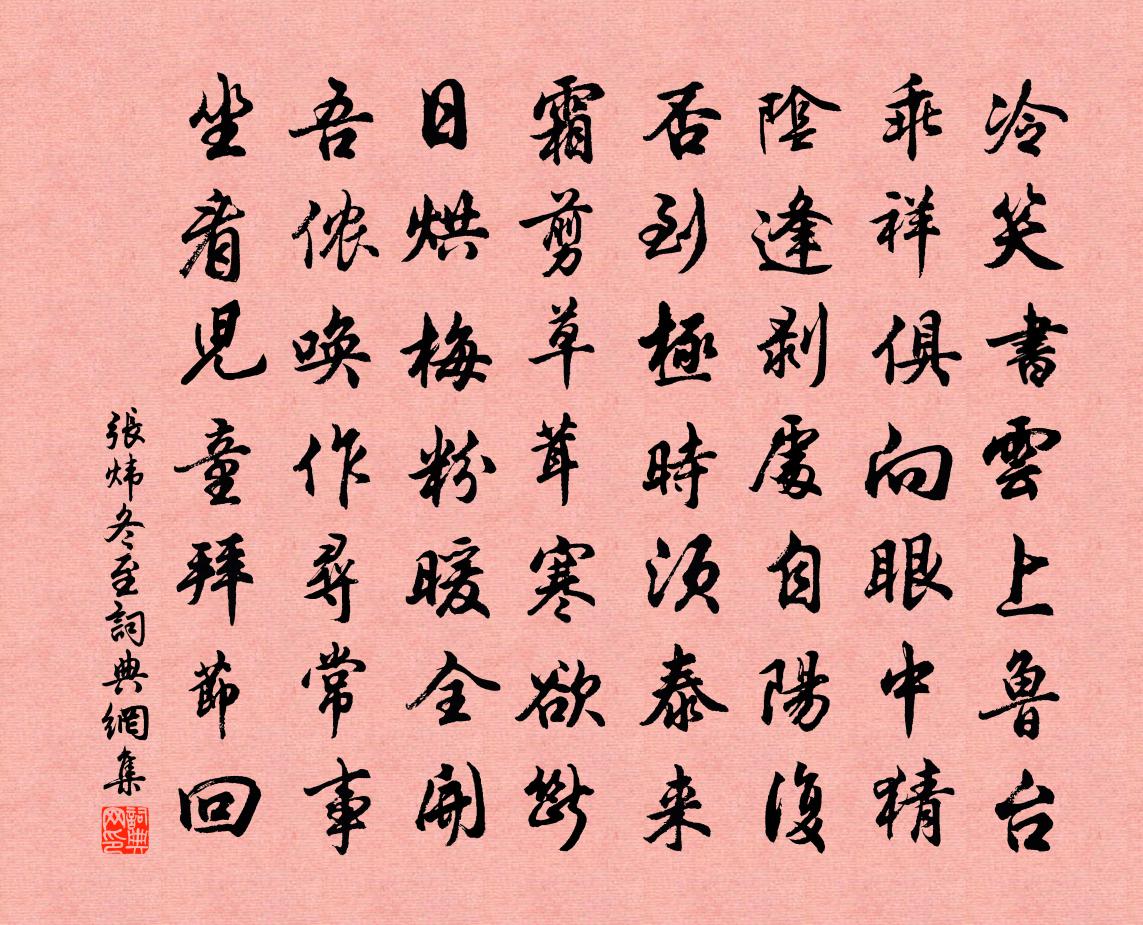 冷笑書雲上魯台
乖祥俱向眼中猜
陰逢剥處自陽復
否到極時須泰来
霜剪草茸寒欲斷
日烘梅粉暖全開
吾儂唤作尋常事
坐看児童拜節回
張煒冬至詞典網集
詞典网印